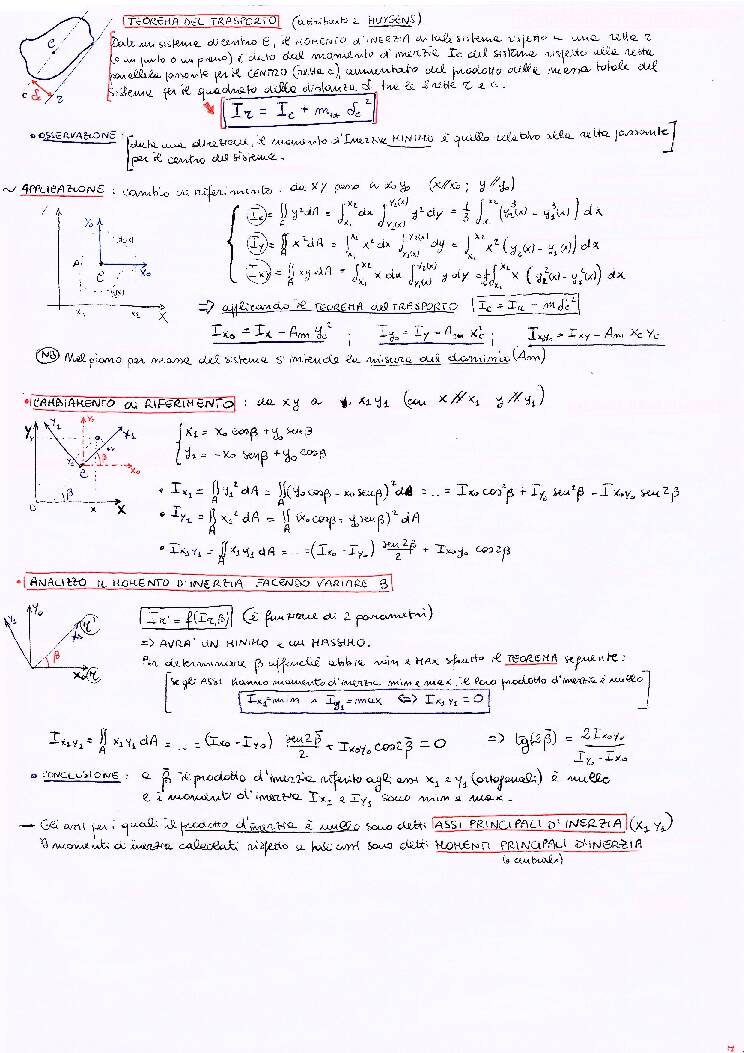 TEOREMA DEL TRASPORTO (attribuito a HUYGENS)
Dato un sistema di centro C, il MOMENTO d'INERZIA di tale sistema rispetto a una retta r
(o un punto o un piano) è dato dal momento d'inerzia Ic del sistema rispetto alla retta
parallela passante per il CENTRO (retta c), aumentato del prodotto della massa totale del
sistema per il quadrato della distanza δ tra le 2 rette r e c.
Ir = Ic + mtot δc²
• OSSERVAZIONE: [data una direzione, il momento d'Inerzia MINIMO è quello relativo alla retta passante
per il centro del sistema.]
~ APPLICAZIONE: cambio di riferimento: da xy passo a x0y0 (x//x0; y//y0)
Ix = ∬ y²dA = ∫x1^x2 dx ∫y1(x)^y2(x) y² dy = 1/3 ∫x1^x2 (y2³(x) - y1³(x)) dx
Iy = ∬A x²dA = ∫x1^x2 x² dx ∫y1(x)^y2(x) dy = ∫x1^x2 x² (y2(x) - y1(x)) dx
Ixy = ∬A xy dA = ∫x1^x2 x dx ∫y1(x)^y2(x) y dy = 1/2 ∫x1^x2 x (y2²(x) - y1²(x)) dx
⇒ applicando il TEOREMA del TRASPORTO Ic = Ir - m δc²
Ix0 = Ix - Am yc² ; Iy0 = Iy - Am xc² ; Ix0y0 = Ixy - Am xc yc
NB Nel piano per massa del sistema s'intende la misura del dominio (Am)
• CAMBIAMENTO di RIFERIMENTO: da xy a x1y1 (con x // x1 y // y1)
x1 = x0 cosβ + y0 senβ
y1 = -x0 senβ + y0 cosβ
• Ix1 = ∬A y1² dA = ∬A (y0 cosβ - x0 senβ)² dA = ... = Ix0 cos²β + Iy0 sen²β - Ix0y0 sen2β
• Iy1 = ∬A x1² dA = ∬A (x0 cosβ + y0 senβ)² dA
• Ix1y1 = ∬A x1y1 dA = ... = (Ix0 - Iy0) sen2β/2 + Ix0y0 cos2β
• ANALIZZO IL MOMENTO D'INERZIA FACENDO VARIARE β
Ir' = f(Ir, β) (è funzione di 2 parametri)
⇒ AVRA' UN MINIMO e un MASSIMO.
Per determinare β affinché abbia min e MAX sfrutto il TEOREMA seguente:
[se gli ASSI hanno momento d'inerzia min e max, il loro prodotto d'inerzia è nullo
Ix1=min ∧ Iy1=max ⇔ Ix1y1=0]
Ix1y1 = ∬A x1y1 dA = ... = (Ix0 - Iy0) sen2β̄/2 + Ix0y0 cos2β̄ = 0 ⇒ tg(2β̄) = 2Ix0y0/(Iy0 - Ix0)
• CONCLUSIONE: a β̄ il prodotto d'inerzia riferito agli assi x1 e y1 (ortogonali) è nullo
e i momenti d'inerzia Ix1 e Iy1 sono min e max.
— Gli assi per i quali il prodotto d'inerzia è nullo sono detti ASSI PRINCIPALI D'INERZIA (x1 y1)
I momenti di inerzia calcolati rispetto a tali assi sono detti MOMENTI PRINCIPALI D'INERZIA
(o centrali)